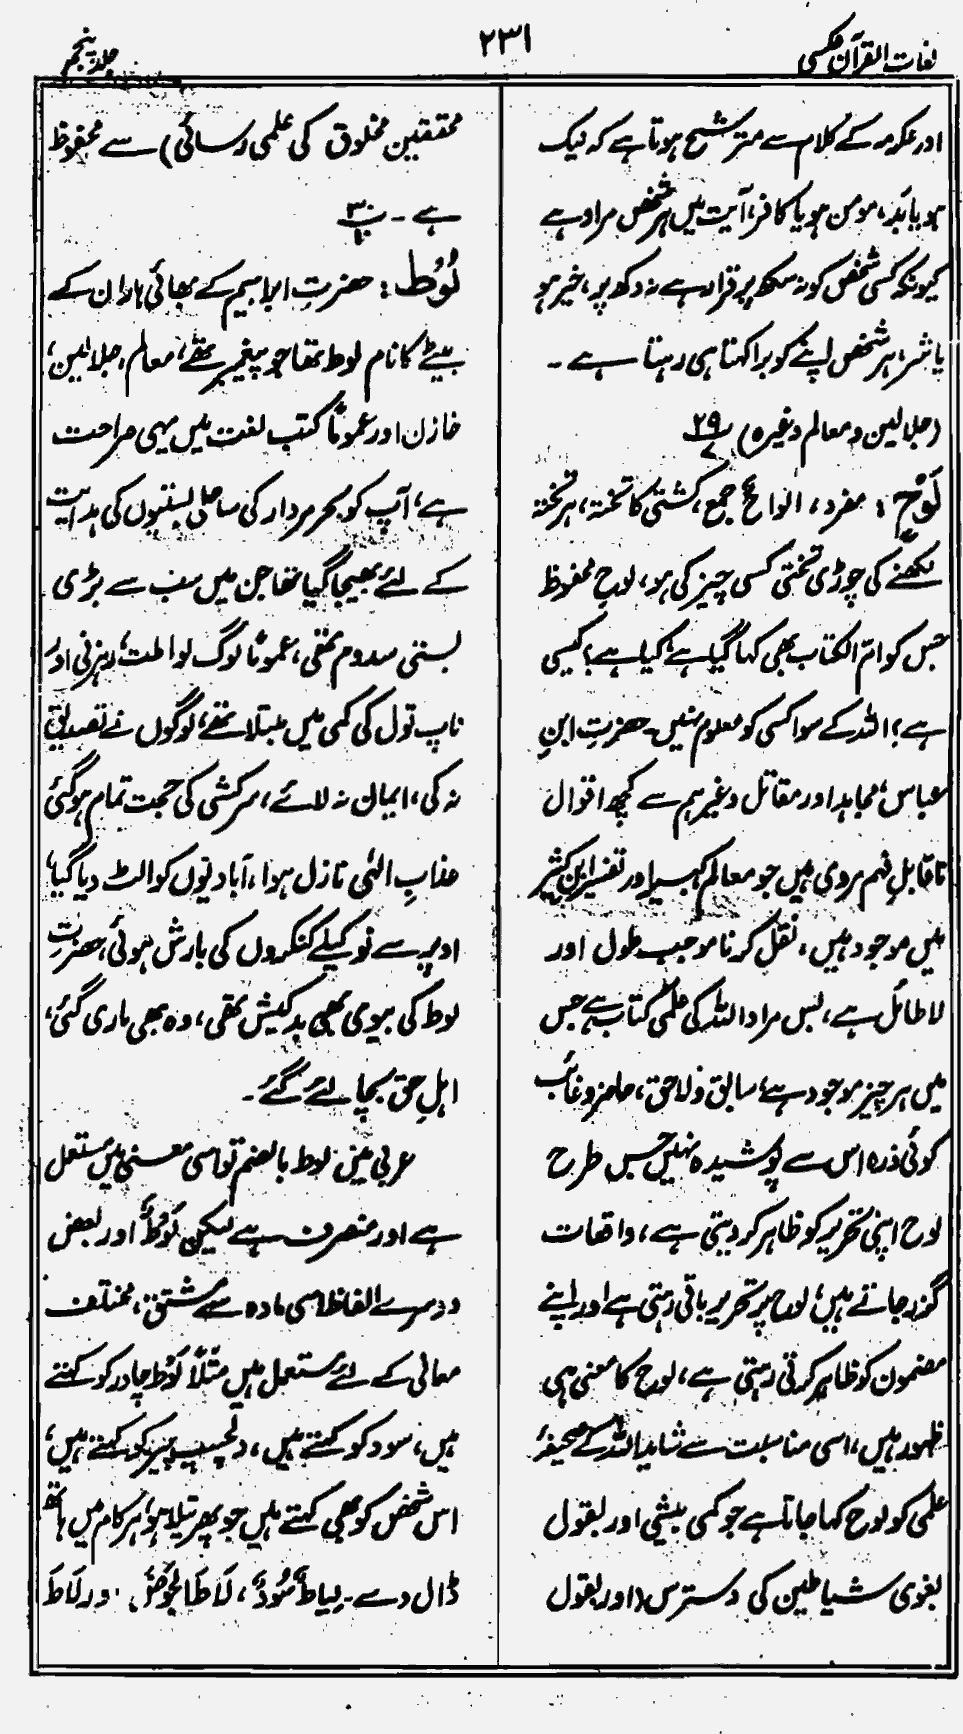 لغات القرآن عکسی
۲۳۱
جلد پنجم
اور عکرمہ کے کلام سے مترشح ہوتا ہے کہ نیک
ہو یا بد، مومن ہو یا کافر، آیت میں ہر شخص مراد ہے
کیونکہ کسی شخص کو نہ سکھ پر قرار ہے نہ دکھ پر، خیر ہو
یا شر، ہر شخص اپنے کو برا کہتا ہی رہتا ہے ۔
(جلالین و معالم وغیرہ) ۲۹/۷
لَوْحٍ : مفرد، الواحٌ جمع، کشتی کا تختہ، ہر تختہ
لکھنے کی چوڑی تختی کسی چیز کی ہو، لوحِ محفوظ
جس کو امّ الکتاب بھی کہا گیا ہے کیا ہے؟ کیسی
ہے؟ اللہ کے سوا کسی کو معلوم نہیں۔ حضرتِ ابنِ
عباس، مجاہد اور مقاتل وغیرہم سے کچھ اقوال
ناقابلِ فہم مروی ہیں جو معالم کبیر اور تفسیر ابن کثیر
میں موجود ہیں، نقل کرنا موجب طول اور
لاطائل ہے، بس مراد اللہ کی علمی کتاب ہے جس
میں ہر چیز موجود ہے، سابق و لاحق، حاضر و غائب
کوئی ذرہ اس سے پوشیدہ نہیں جس طرح
لوح اپنی تحریر کو ظاہر کر دیتی ہے، واقعات
گزر جاتے ہیں، لوح پر تحریر باقی رہتی ہے اور اپنے
مضمون کو ظاہر کرتی رہتی ہے، لوح کا معنی ہی
ظہور ہیں، اسی مناسبت سے شاید اللہ کے صحیفۂ
علمی کو لوح کہا جاتا ہے جو کمی بیشی اور بقول
بغوی شیاطین کی دسترس (اور بقول
محققین مخلوق کی علمی رسائی) سے محفوظ
ہے ۔ ۳۰/۱۰
لُوْط : حضرتِ ابراہیم کے بھائی ہاران کے
بیٹے کا نام لوط تھا جو پیغمبر تھے، معالم، جلالین،
خازن اور عموماً کتب لغت میں یہی صراحت
ہے، آپ کو بحر مردار کی ساحلی بستیوں کی ہدایت
کے لئے بھیجا گیا تھا جن میں سب سے بڑی
بستی سدوم تھی، عموماً لوگ لواطت، رہزنی اور
ناپ تول کی کمی میں مبتلا تھے، لوگوں نے تصدیق
نہ کی، ایمان نہ لائے، سرکشی کی حجت تمام ہو گئی
عذابِ الٰہی نازل ہوا، آبادیوں کو الٹ دیا گیا،
اوپر سے نوکیلے کنکروں کی بارش ہوئی، حضرتِ
لوط کی بیوی بھی بدکیش تھی، وہ بھی ماری گئی،
اہلِ حق بچا لئے گئے ۔
عربی میں لوط بالضم تو اسی معنی میں مستعمل
ہے اور منصرف ہے لیکن لَوْطٌ اور بعض
دوسرے الفاظ اسی مادہ سے مشتق، مختلف
معانی کے لئے مستعمل ہیں مثلاً لَوْط چادر کو کہتے
ہیں، سود کو کہتے ہیں، دلچسپ چیز کو کہتے ہیں،
اس شخص کو بھی کہتے ہیں جو پھرتیلا ہو، ہر کام میں ہاتھ
ڈال دے ۔ لِیاط سُوْد، لَاطَ الحَوْضَ اور لَاطَ